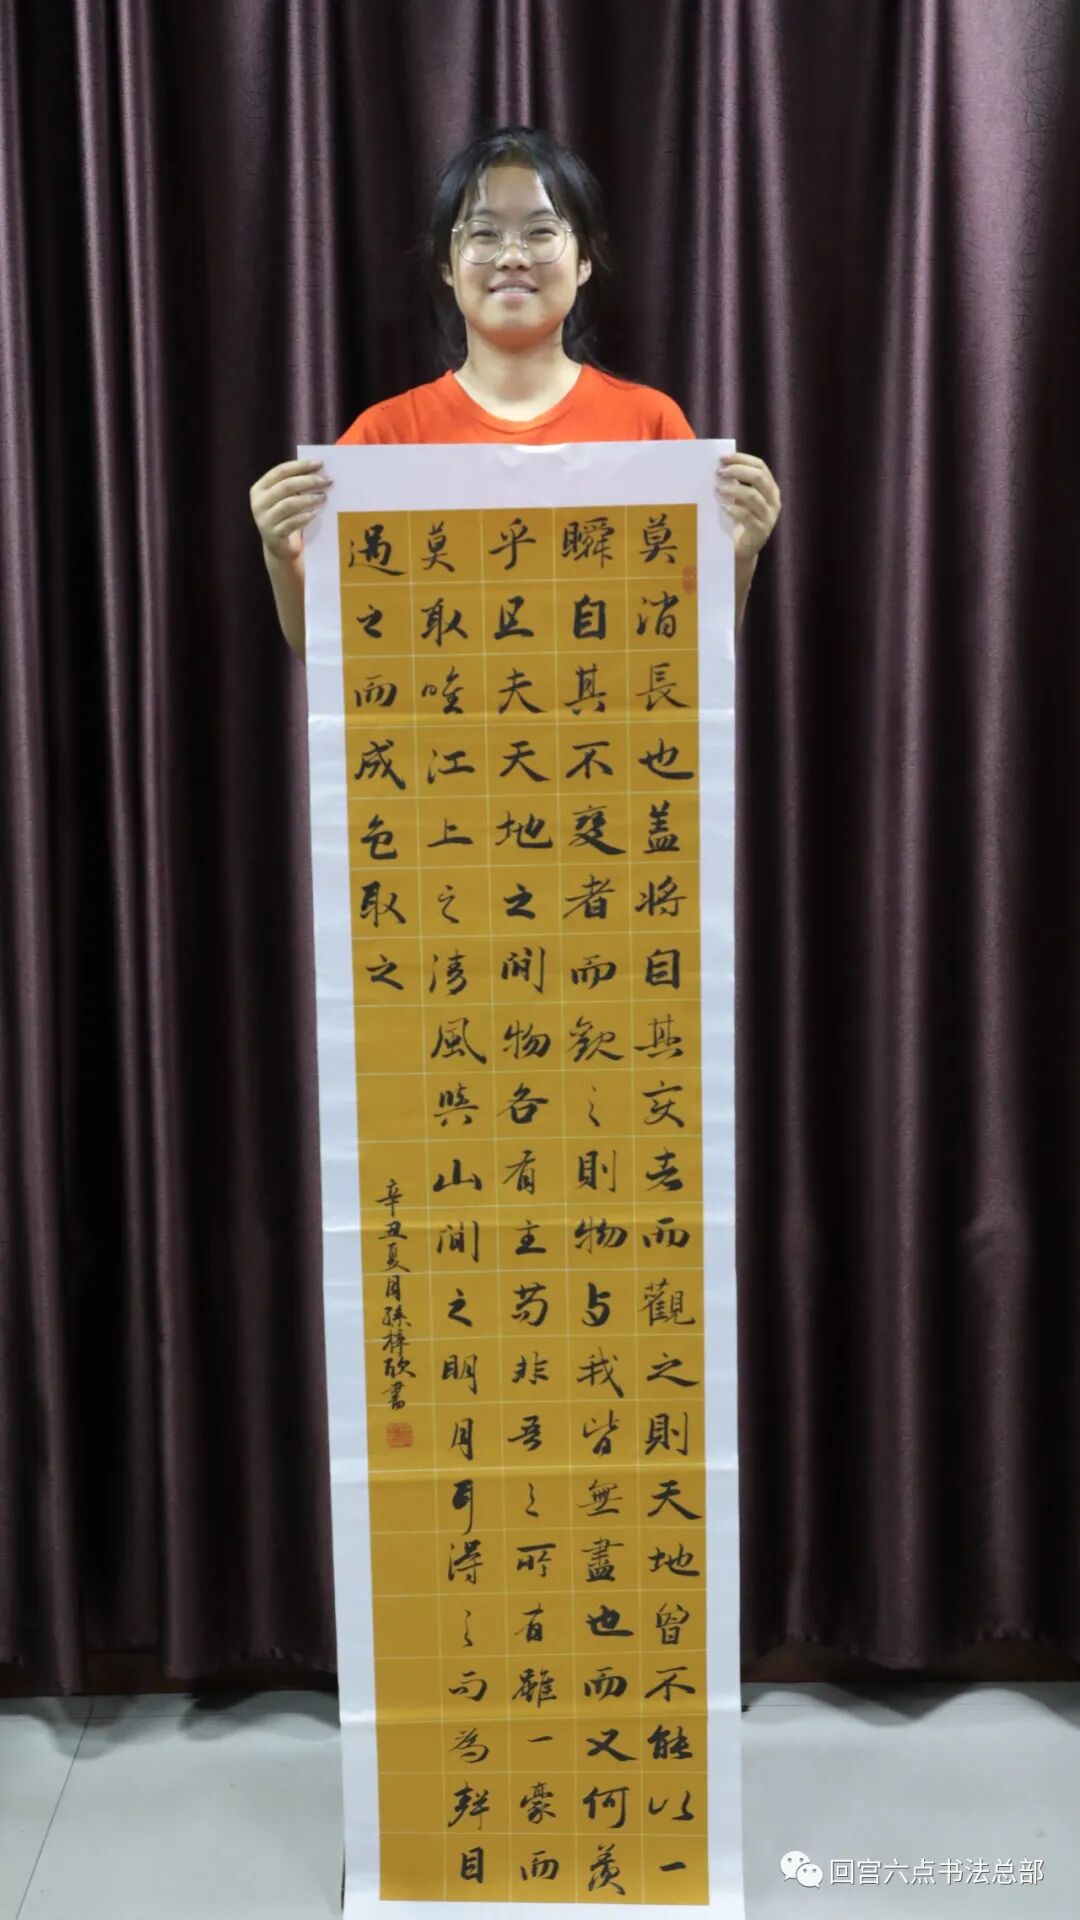 莫消長也盖将自其变者而觀之則天地曾不能以一
瞬自其不變者而觀之則物与我皆無盡也而又何羨
乎且夫天地之間物各有主苟非吾之所有雖一豪而
莫取唯江上之清風與山間之明月耳得之而為聲目
遇之而成色取之
辛丑夏月孫梓欣書
回宫六点书法总部